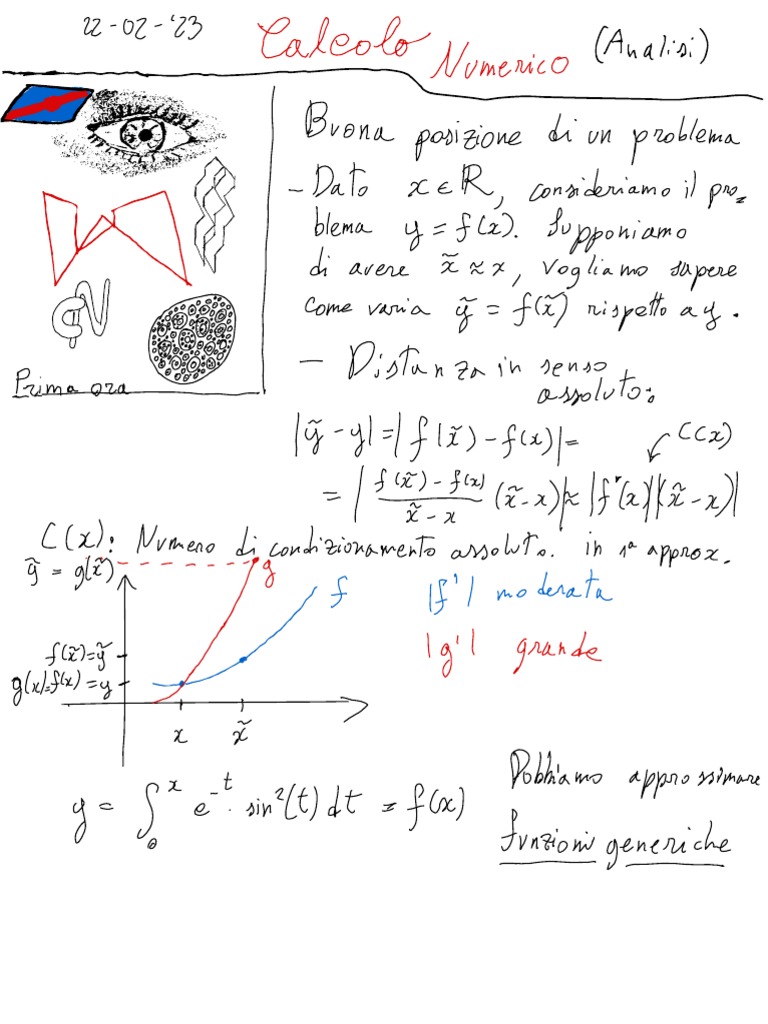 22-02-'23
Calcolo Numerico (Analisi)
Prima ora
Buona posizione di un problema
- Dato x ∈ ℝ, consideriamo il pro=
blema y = f(x). Supponiamo
di avere x̃ ≈ x, vogliamo sapere
come varia ỹ = f(x̃) rispetto a y.
- Distanza in senso
assoluto:
|ỹ - y| = |f(x̃) - f(x)| =
C(x)
= |(f(x̃) - f(x))/(x̃ - x) (x̃ - x)| ≈ |f'(x)||(x̃ - x)|
C(x): Numero di condizionamento assoluto. in 1ª approx.
ỹ = g(x̃)
g
f
|f'| moderata
|g'| grande
f(x̃)=ỹ
g(x)=f(x)=y
x x̃
y = ∫₀ˣ e^-t · sin²(t) dt = f(x)
Dobbiamo approssimare
funzioni generiche